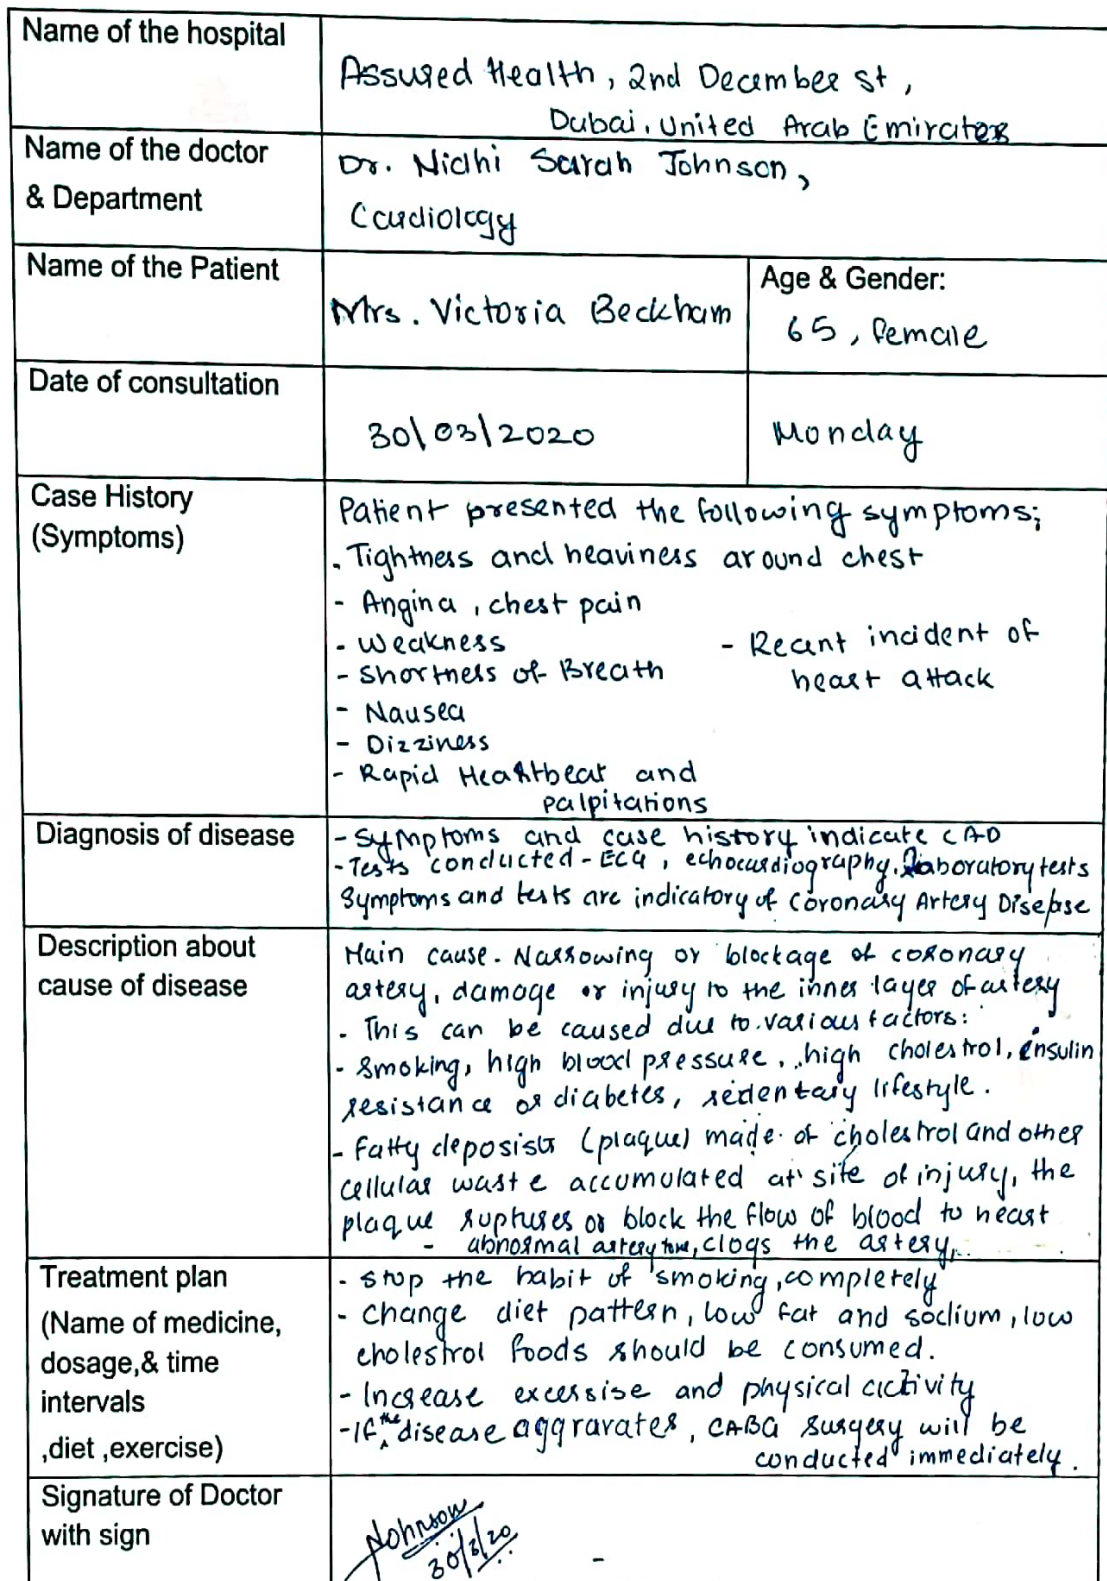 Name of the hospital
Assured Health, 2nd December st,
Dubai, United Arab Emirates
Name of the doctor
& Department
Dr. Nidhi Sarah Johnson,
Cardiology
Name of the Patient
Mrs. Victoria Beckham
Age & Gender:
65, Female
Date of consultation
30/03/2020
Monday
Case History
(Symptoms)
Patient presented the following symptoms;
. Tightness and heaviness around chest
- Angina, chest pain
- Weakness
- Shortness of Breath
- Nausea
- Dizziness
- Rapid Heartbeat and
palpitations
- Recent incident of
heart attack
Diagnosis of disease
- Symptoms and case history indicate CAD
- Tests conducted - ECG, echocardiography, laboratory tests
Symptoms and tests are indicatory of Coronary Artery Disease
Description about
cause of disease
Main cause - Narrowing or blockage of coronary
artery, damage or injury to the inner layer of artery
- This can be caused due to various factors:
- Smoking, high blood pressure, high cholestrol, insulin
resistance or diabetes, sedentary lifestyle.
- Fatty deposists (plaque) made of cholestrol and other
cellular waste accumulated at site of injury, the
plaque ruptures or block the flow of blood to heart
- abnormal artery tone, clogs the artery,
Treatment plan
(Name of medicine,
dosage,& time
intervals
,diet ,exercise)
- Stop the habit of smoking, completely
- Change diet pattern, low fat and sodium, low
cholestrol foods should be consumed.
- Increase excersise and physical activity
- If the disease aggravates, CABG surgery will be
conducted immediately.
Signature of Doctor
with sign
Johnson
30/3/20